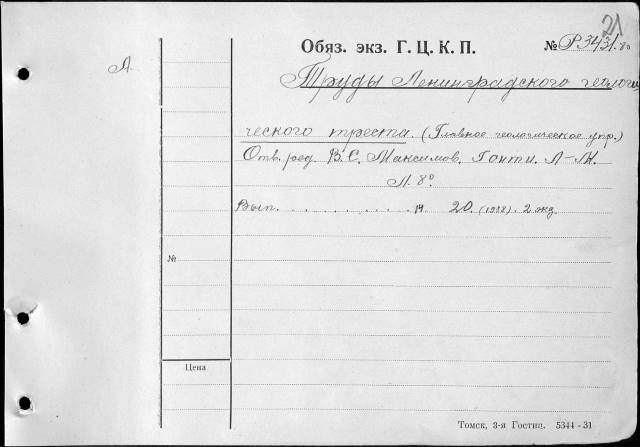 21
Обяз. экз. Г. Ц. К. П. № Р3431.8о
А.
Труды Ленинградского геологи
ческого треста. (Главное геологическое упр.)
Отв. ред. В. С. Максимов. Гонти. Л-М.
Л. 8°
Вып. . . . . . . . . . . 14 20. (1938). 2 экз.
№
Цена
Томск, 3-я Гостип. 5344-31